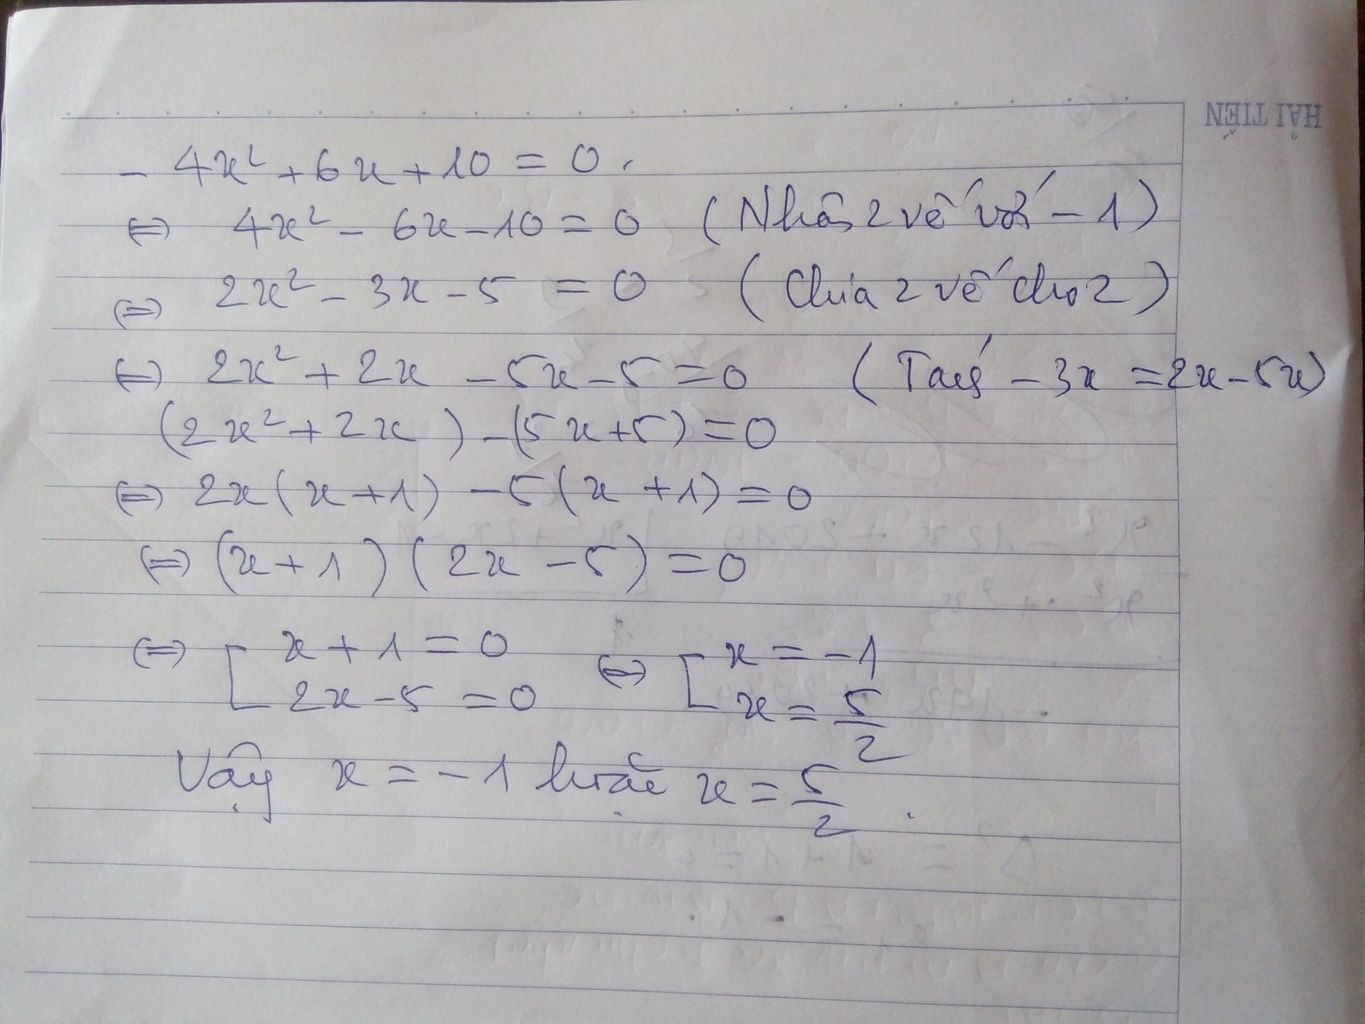 HẢI TIẾN
- 4x² + 6x + 10 = 0.
⇔ 4x² - 6x - 10 = 0 (Nhân 2 vế với - 1)
⇔ 2x² - 3x - 5 = 0 (Chia 2 vế cho 2)
⇔ 2x² + 2x - 5x - 5 = 0 (Tách - 3x = 2x - 5x)
(2x² + 2x) - (5x + 5) = 0
⇔ 2x(x + 1) - 5(x + 1) = 0
⇔ (x + 1)(2x - 5) = 0
⇔ [ x + 1 = 0 ⇔ [ x = -1
2x - 5 = 0 x = 5/2
Vậy x = -1 hoặc x = 5/2.